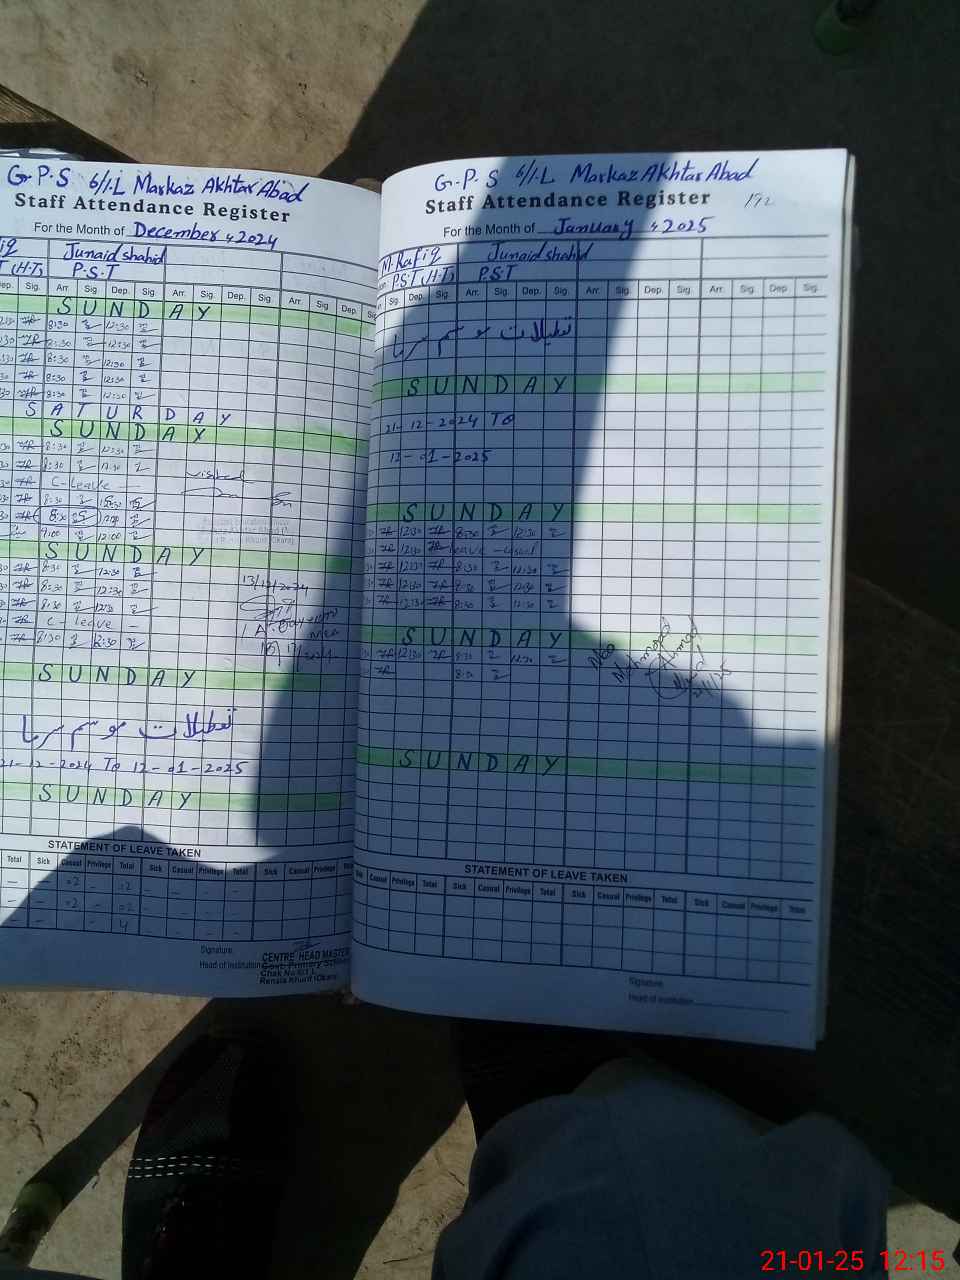 G.P.S 6/1.L Markaz Akhtar Abad
Staff Attendance Register
For the Month of December, 2024
Junaid shahid
(H.T) P.S.T
Dep. Sig. Arr. Sig. Dep. Sig. Arr. Sig. Dep. Sig. Arr. Sig. Dep.
SUNDAY
8:30 12:30
8:30 12:30
8:30 12:30
8:30 12:30
8:30 12:30
SATURDAY
SUNDAY
8:30 12:30
8:30 12:30
C-Leave —
8:30 12:30
8:30
9:00 12:00
visited
SUNDAY
8:30 12:30
8:30 12:30
8:30 12:30
C-leave —
8:30 12:30
13/12/2024
SUNDAY
تعطیلات موسم سرما
21-12-2024 To 12-01-2025
SUNDAY
STATEMENT OF LEAVE TAKEN
Total Sick Casual Privilege Total Sick Casual Privilege Total Sick Casual Privilege
— — 02 — 02
— — 02 — 02
— — — 4
Signature
Head of institution
CENTRE HEAD MASTER
Govt. Primary School
Chak No 6/1.L
Renala Khurd (Okara)
G.P.S 6/1.L Markaz Akhtar Abad
Staff Attendance Register
192
For the Month of January, 2025
M.Rafiq Junaid shahid
P.S.T (H.T) P.S.T
Sig. Dep. Sig. Arr. Sig. Dep. Sig. Arr. Sig. Dep. Sig. Arr. Sig. Dep. Sig.
تعطیلات موسم سرما
SUNDAY
21-12-2024 To
12-01-2025
SUNDAY
12:30 8:30 12:30
12:30 leave -casual
12:30 8:30 12:30
12:30 8:30 12:30
12:30 8:30 12:30
SUNDAY
12:30 8:30 12:30
8:30
Mahmood Ahmad
21/1/25
SUNDAY
STATEMENT OF LEAVE TAKEN
Sick Casual Privilege Total Sick Casual Privilege Total Sick Casual Privilege Total Sick Casual Privilege Total
Signature
Head of institution
21-01-25 12:15